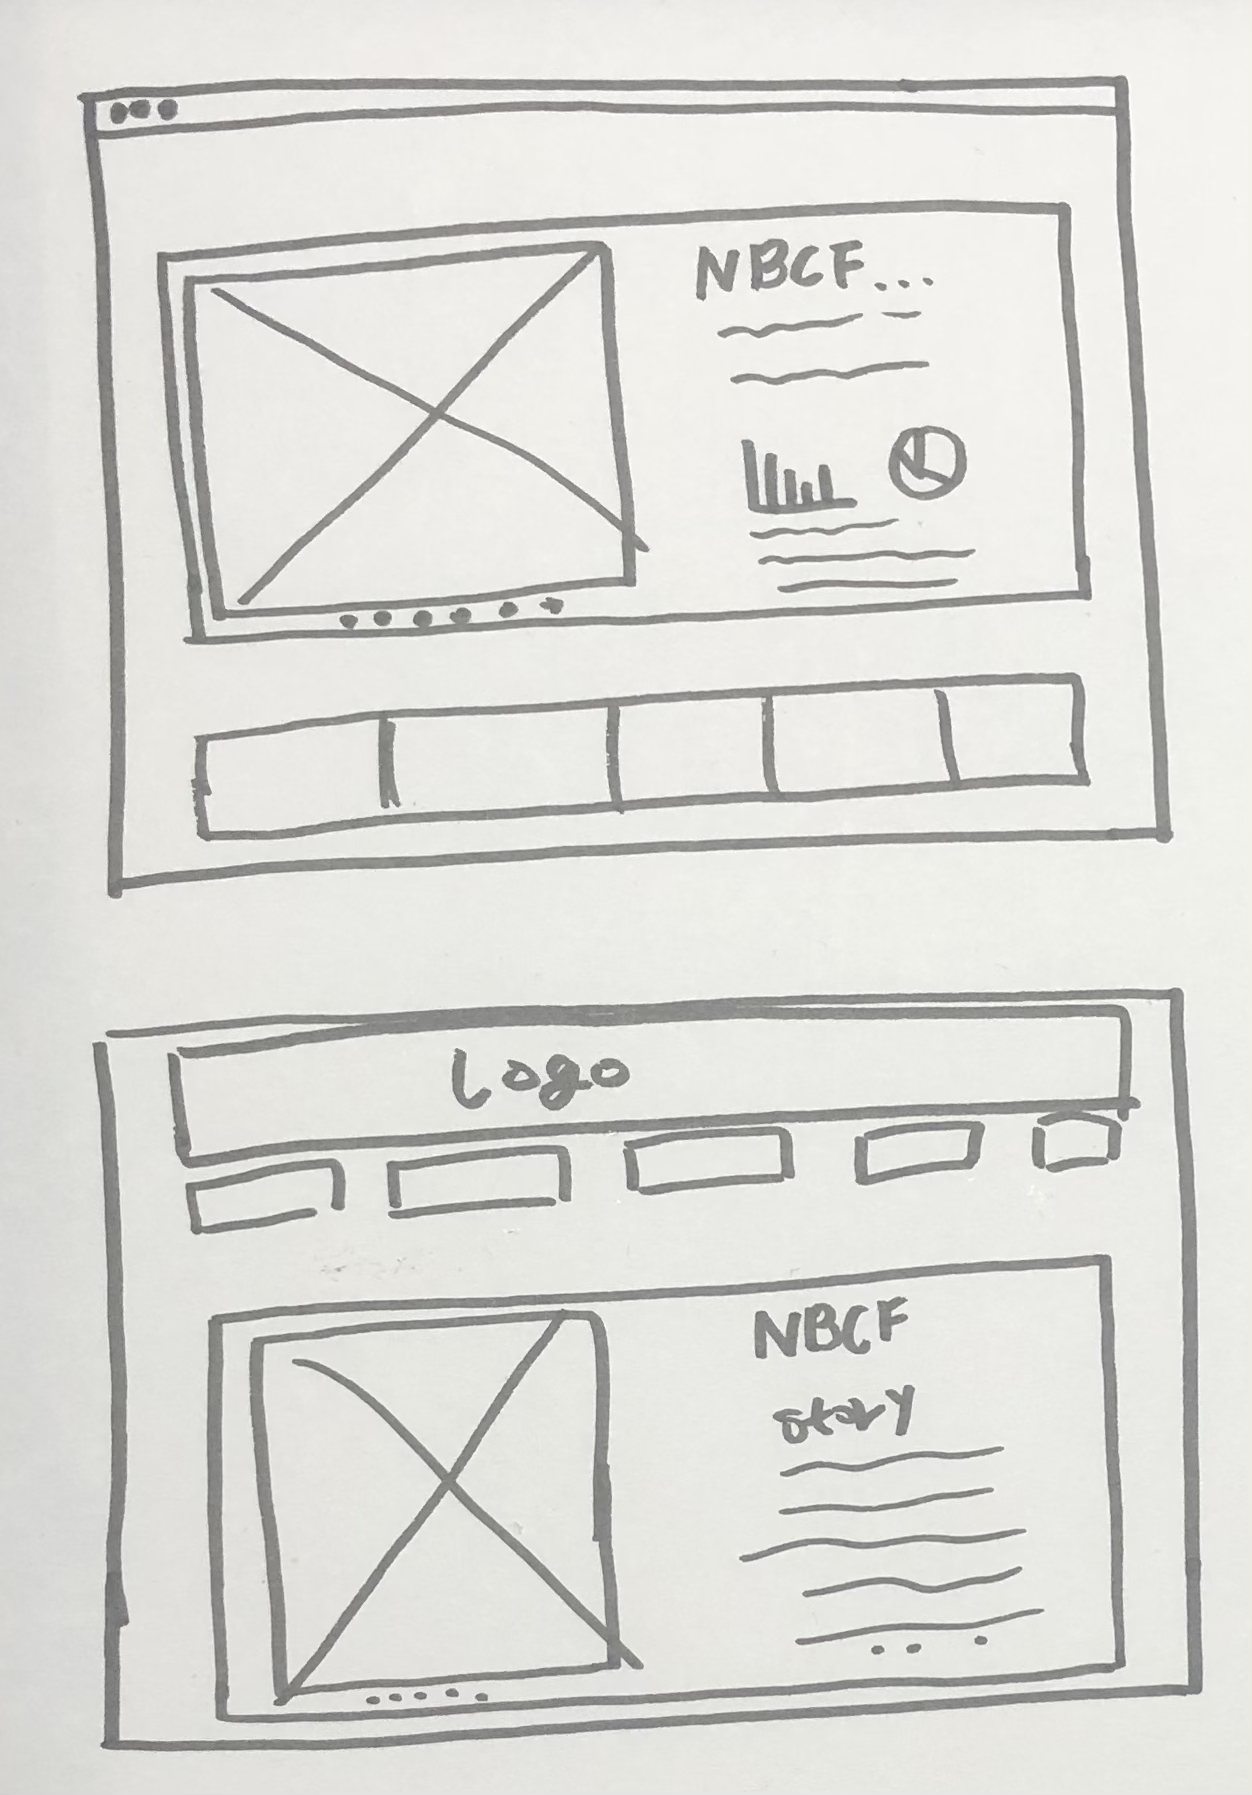 NBCF...
Logo
NBCF
story